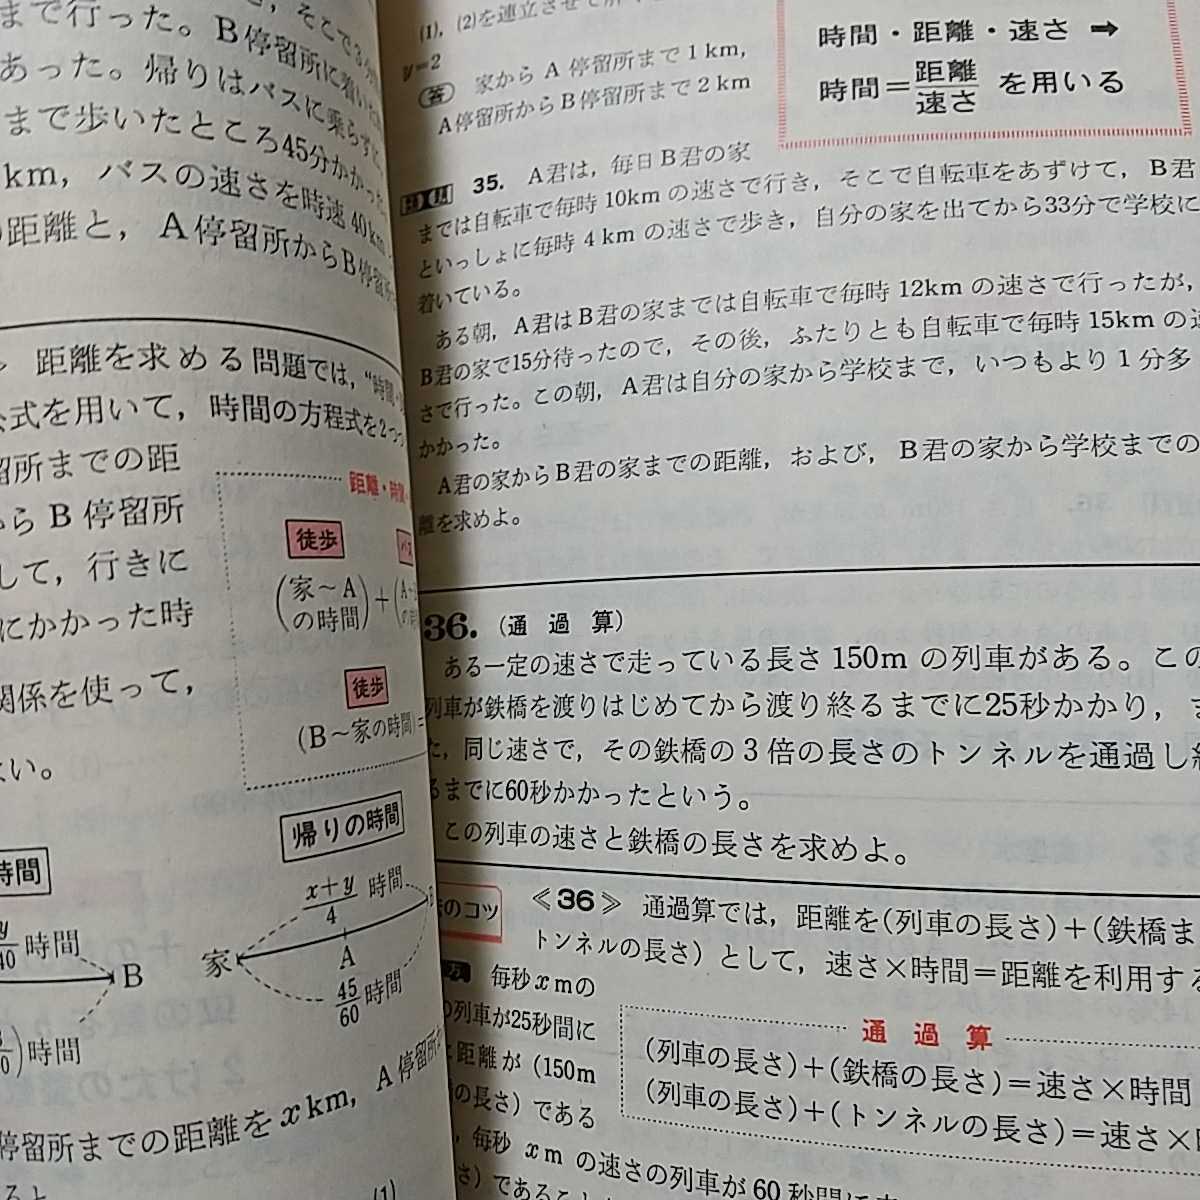 まで行った。B停留所に着いた
あった。帰りはバスに乗らずに
まで歩いたところ45分かかった
km，バスの速さを時速40km
距離と，A停留所からB停留所
距離を求める問題では，“時間・
公式を用いて，時間の方程式を2つ
留所までの距
らB停留所
して，行きに
にかかった時
関係を使って，
い。
距離・時間
徒歩
バス
(家〜A の時間)＋(A〜
徒歩
(B〜家の時間)＝
時間
帰りの時間
y/40 時間
B
時間
x+y/4 時間
家
A
B
45/60 時間
停留所までの距離をxkm，A停留所
(1)
(1)，(2)を連立させて
y＝2
答 家からA停留所まで1km，
A停留所からB停留所まで2km
時間・距離・速さ ➡
時間＝距離/速さ を用いる
類題 35. A君は，毎日B君の家
までは自転車で毎時10kmの速さで行き，そこで自転車をあずけて，B君
といっしょに毎時4kmの速さで歩き，自分の家を出てから33分で学校に
着いている。
ある朝，A君はB君の家までは自転車で毎時12kmの速さで行ったが，
B君の家で15分待ったので，その後，ふたりとも自転車で毎時15kmの速
さで行った。この朝，A君は自分の家から学校まで，いつもより1分多
かかった。
A君の家からB君の家までの距離，および，B君の家から学校までの
離を求めよ。
36. (通過算)
ある一定の速さで走っている長さ150mの列車がある。この
列車が鉄橋を渡りはじめてから渡り終るまでに25秒かかり，ま
た，同じ速さで，その鉄橋の3倍の長さのトンネルを通過し終
るまでに60秒かかったという。
この列車の速さと鉄橋の長さを求めよ。
のコツ 《36》 通過算では，距離を(列車の長さ)＋(鉄橋ま
トンネルの長さ)として，速さ×時間＝距離を利用する
方 毎秒xmの
の列車が25秒間に
距離が(150m
の長さ)である
，毎秒xmの速さの列車が60秒間に
さ)であること
通過算
(列車の長さ)＋(鉄橋の長さ)＝速さ×時間
(列車の長さ)＋(トンネルの長さ)＝速さ×時